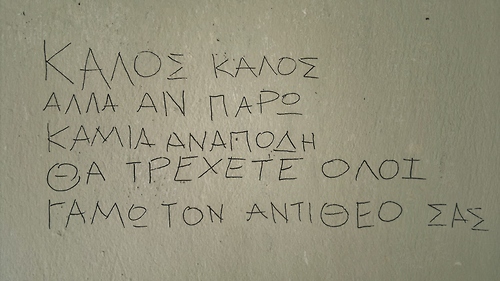 ΚΑΛΟΣ ΚΑΛΟΣ
ΑΛΛΑ ΑΝ ΠΑΡΩ
ΚΑΜΙΑ ΑΝΑΠΟΔΗ
ΘΑ ΤΡΕΧΕΤΕ ΟΛΟΙ
ΓΑΜΩ ΤΟΝ ΑΝΤΙΘΕΟ ΣΑΣ